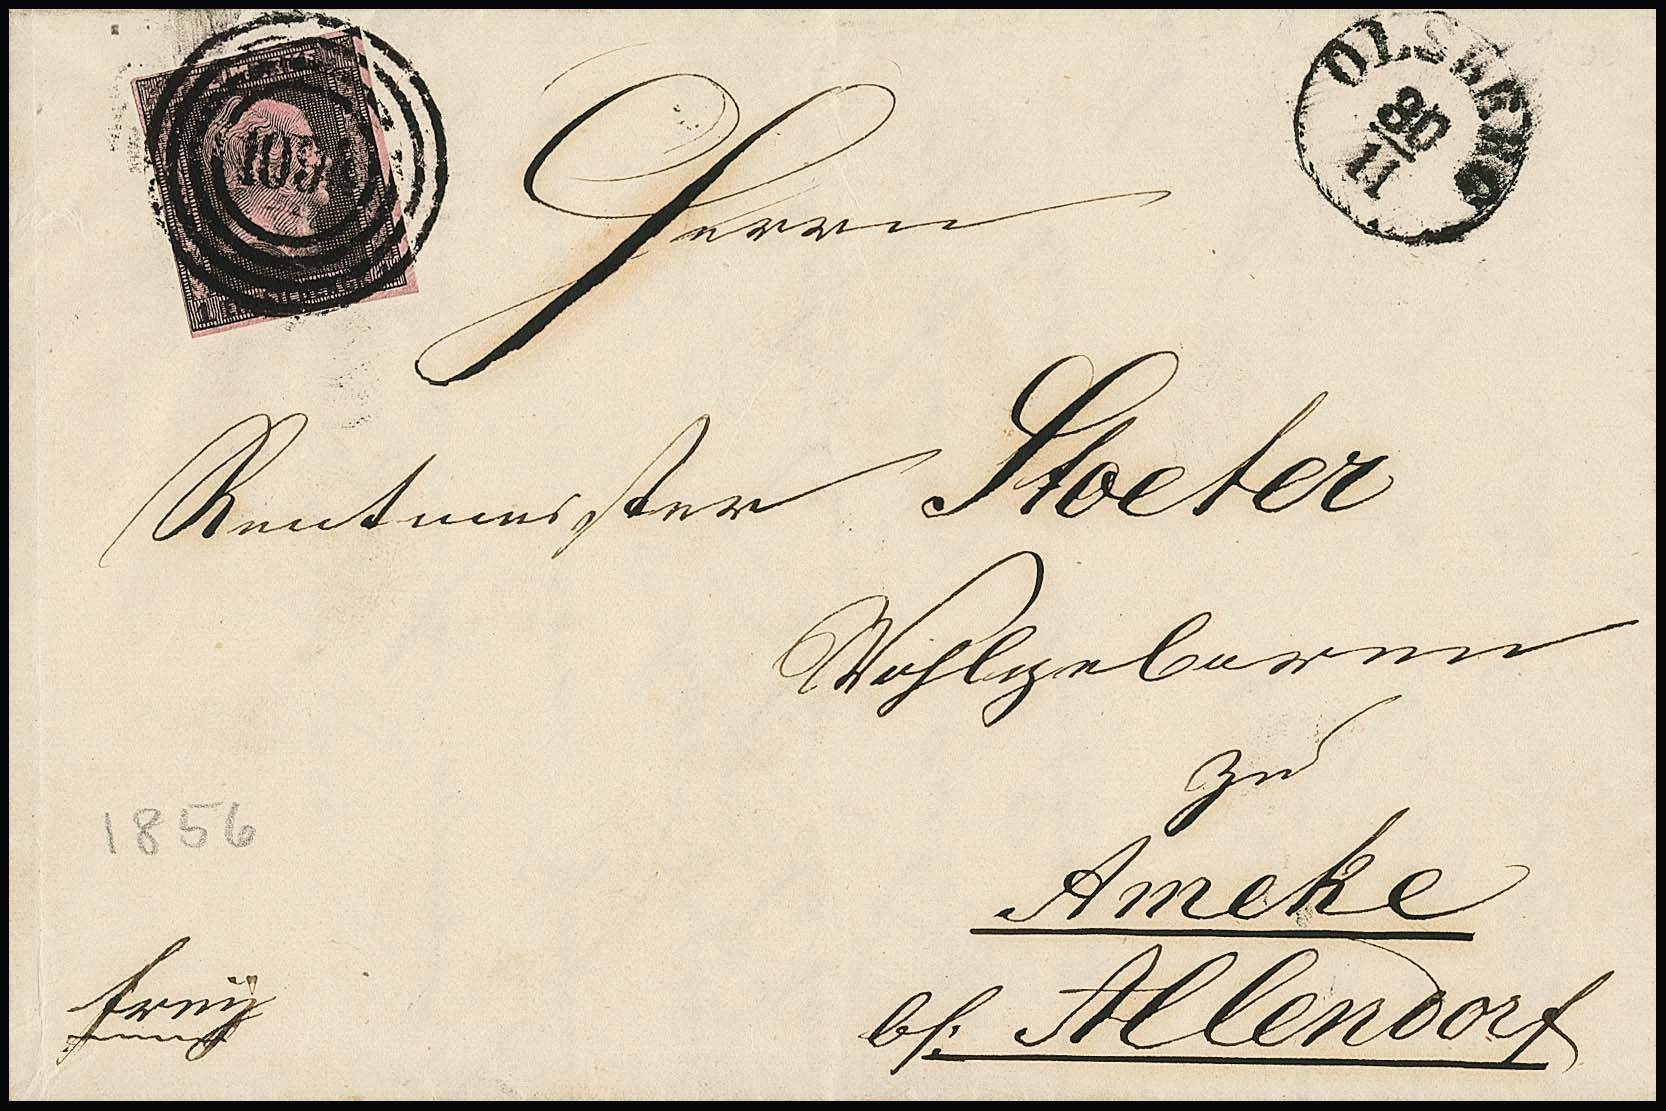 OLSBERG
30
11
Herrn
Rentmeister Stoeter
Wohlgeboren
zu
Ameke
bs. Allendorf
1856
frey